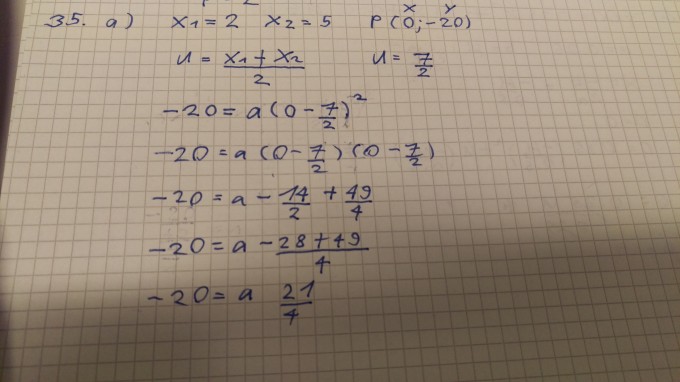 35. a) x1 = 2 x2 = 5 P (0; -20)
x y
u = (x1 + x2)/2 u = 7/2
-20 = a (0 - 7/2)^2
-20 = a (0 - 7/2) (0 - 7/2)
-20 = a - 14/2 + 49/4
-20 = a - (28 + 49)/4
-20 = a 21/4